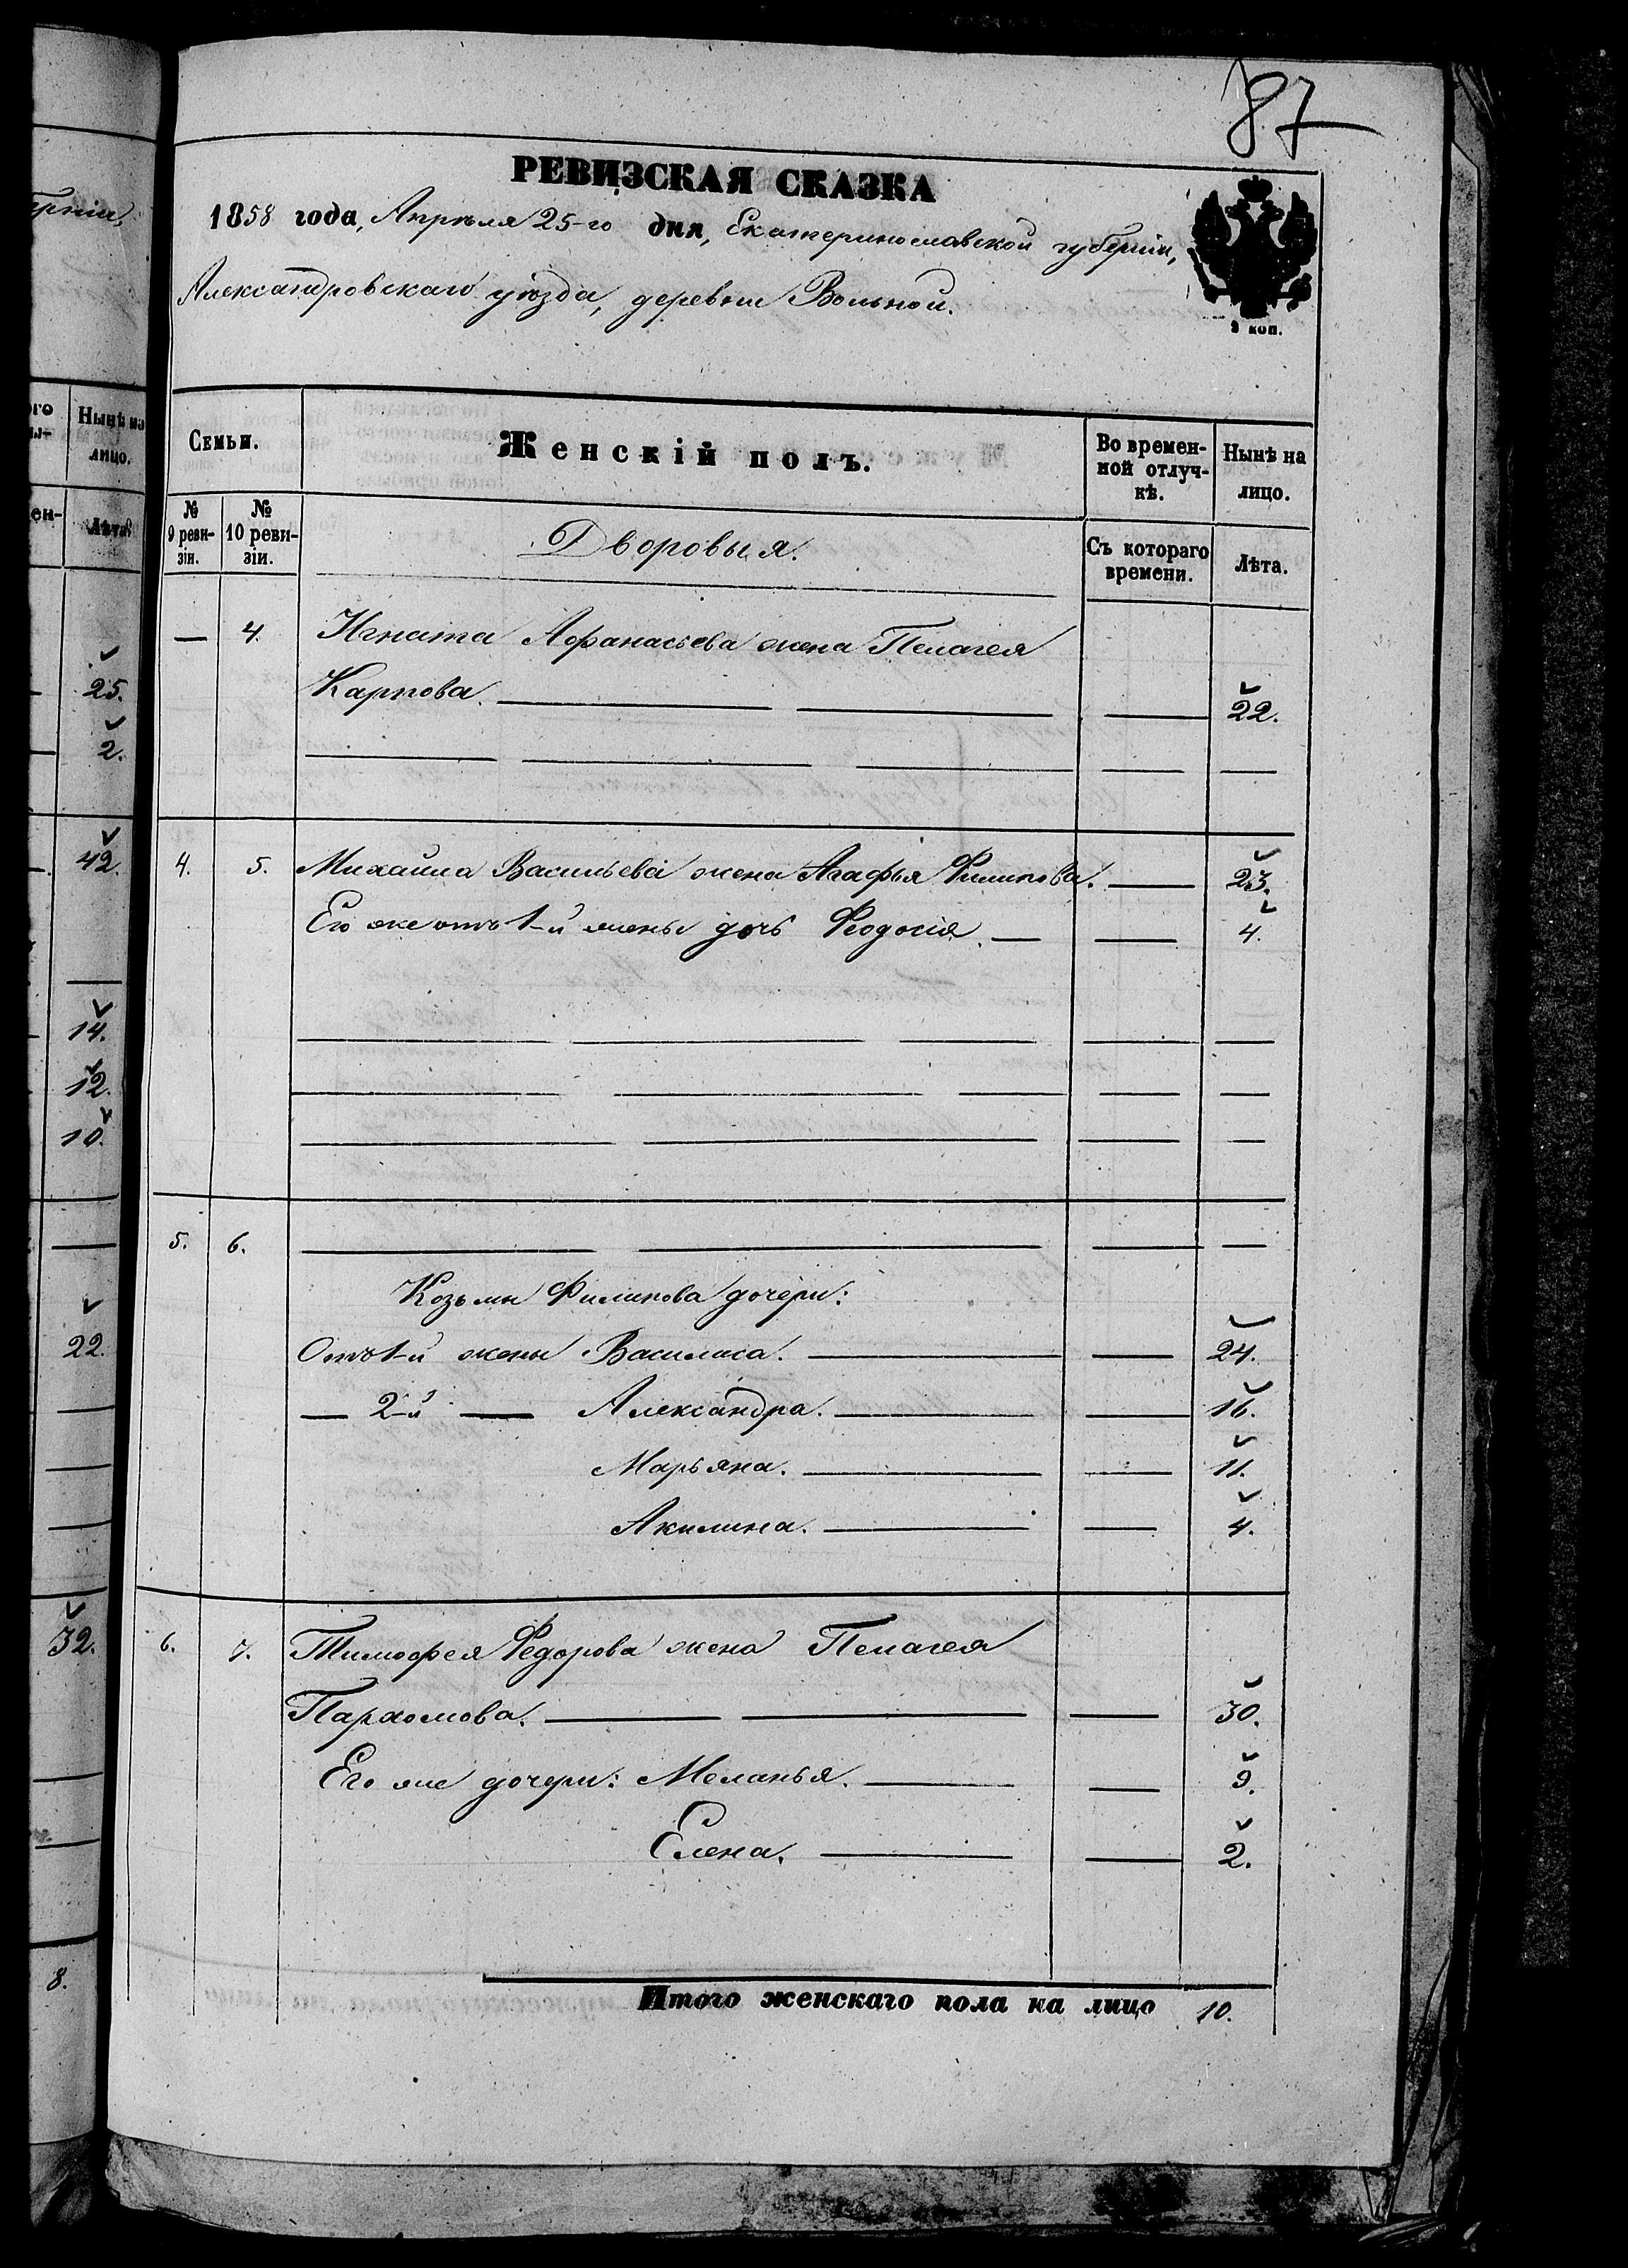 87
РЕВИЗСКАЯ СКАЗКА
1858 года, Апрѣля 25-го дня, Екатеринославской губерніи,
Александровскаго уѣзда, деревни Вольной.
3 коп.
Нынѣ на лицо.
Лѣта
25.
2.
42.
14.
12.
10.
22.
32.
8.
Семьи.
Женскій полъ.
Во времен-
ной отлуч-
кѣ.
Нынѣ на
лицо.
№ 9 реви-
зіи.
№ 10 реви-
зіи.
Дворовыя.
Съ котораго
времени.
Лѣта.
— 4. Игната Афанасьева жена Пелагея
Карпова. — 22.
4. 5. Михаила Васильева жена Агафья Филипова. — 23.
Его же отъ 1-й жены дочь Феодосія. — 4.
5. 6.
Козьмы Филипова дочери:
Отъ 1-й жены Василиса. — 24.
— 2-й — Александра. — 16.
Марьяна. — 11.
Акилина. — 4.
6. 7. Тимофея Федорова жена Пелагея
Пархомова. — 30.
Его же дочери: Меланья. — 9.
Елена. — 2.
Итого женскаго пола на лицо 10.